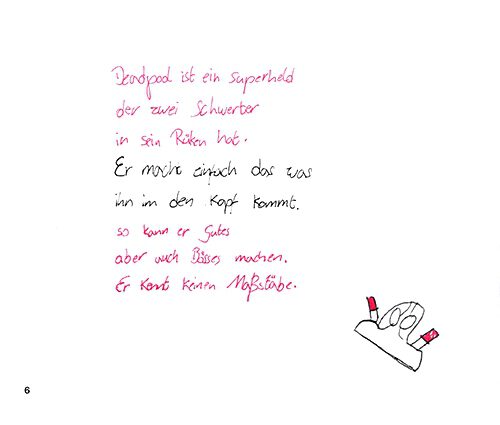 Deadpool ist ein Superheld
der zwei Schwerter
in sein Rüken hat.
Er macht einfach das was
ihn in den Kopf kommt.
so kann er Gutes
aber auch Bösses machen.
Er kent keinen Maßstäbe.
6